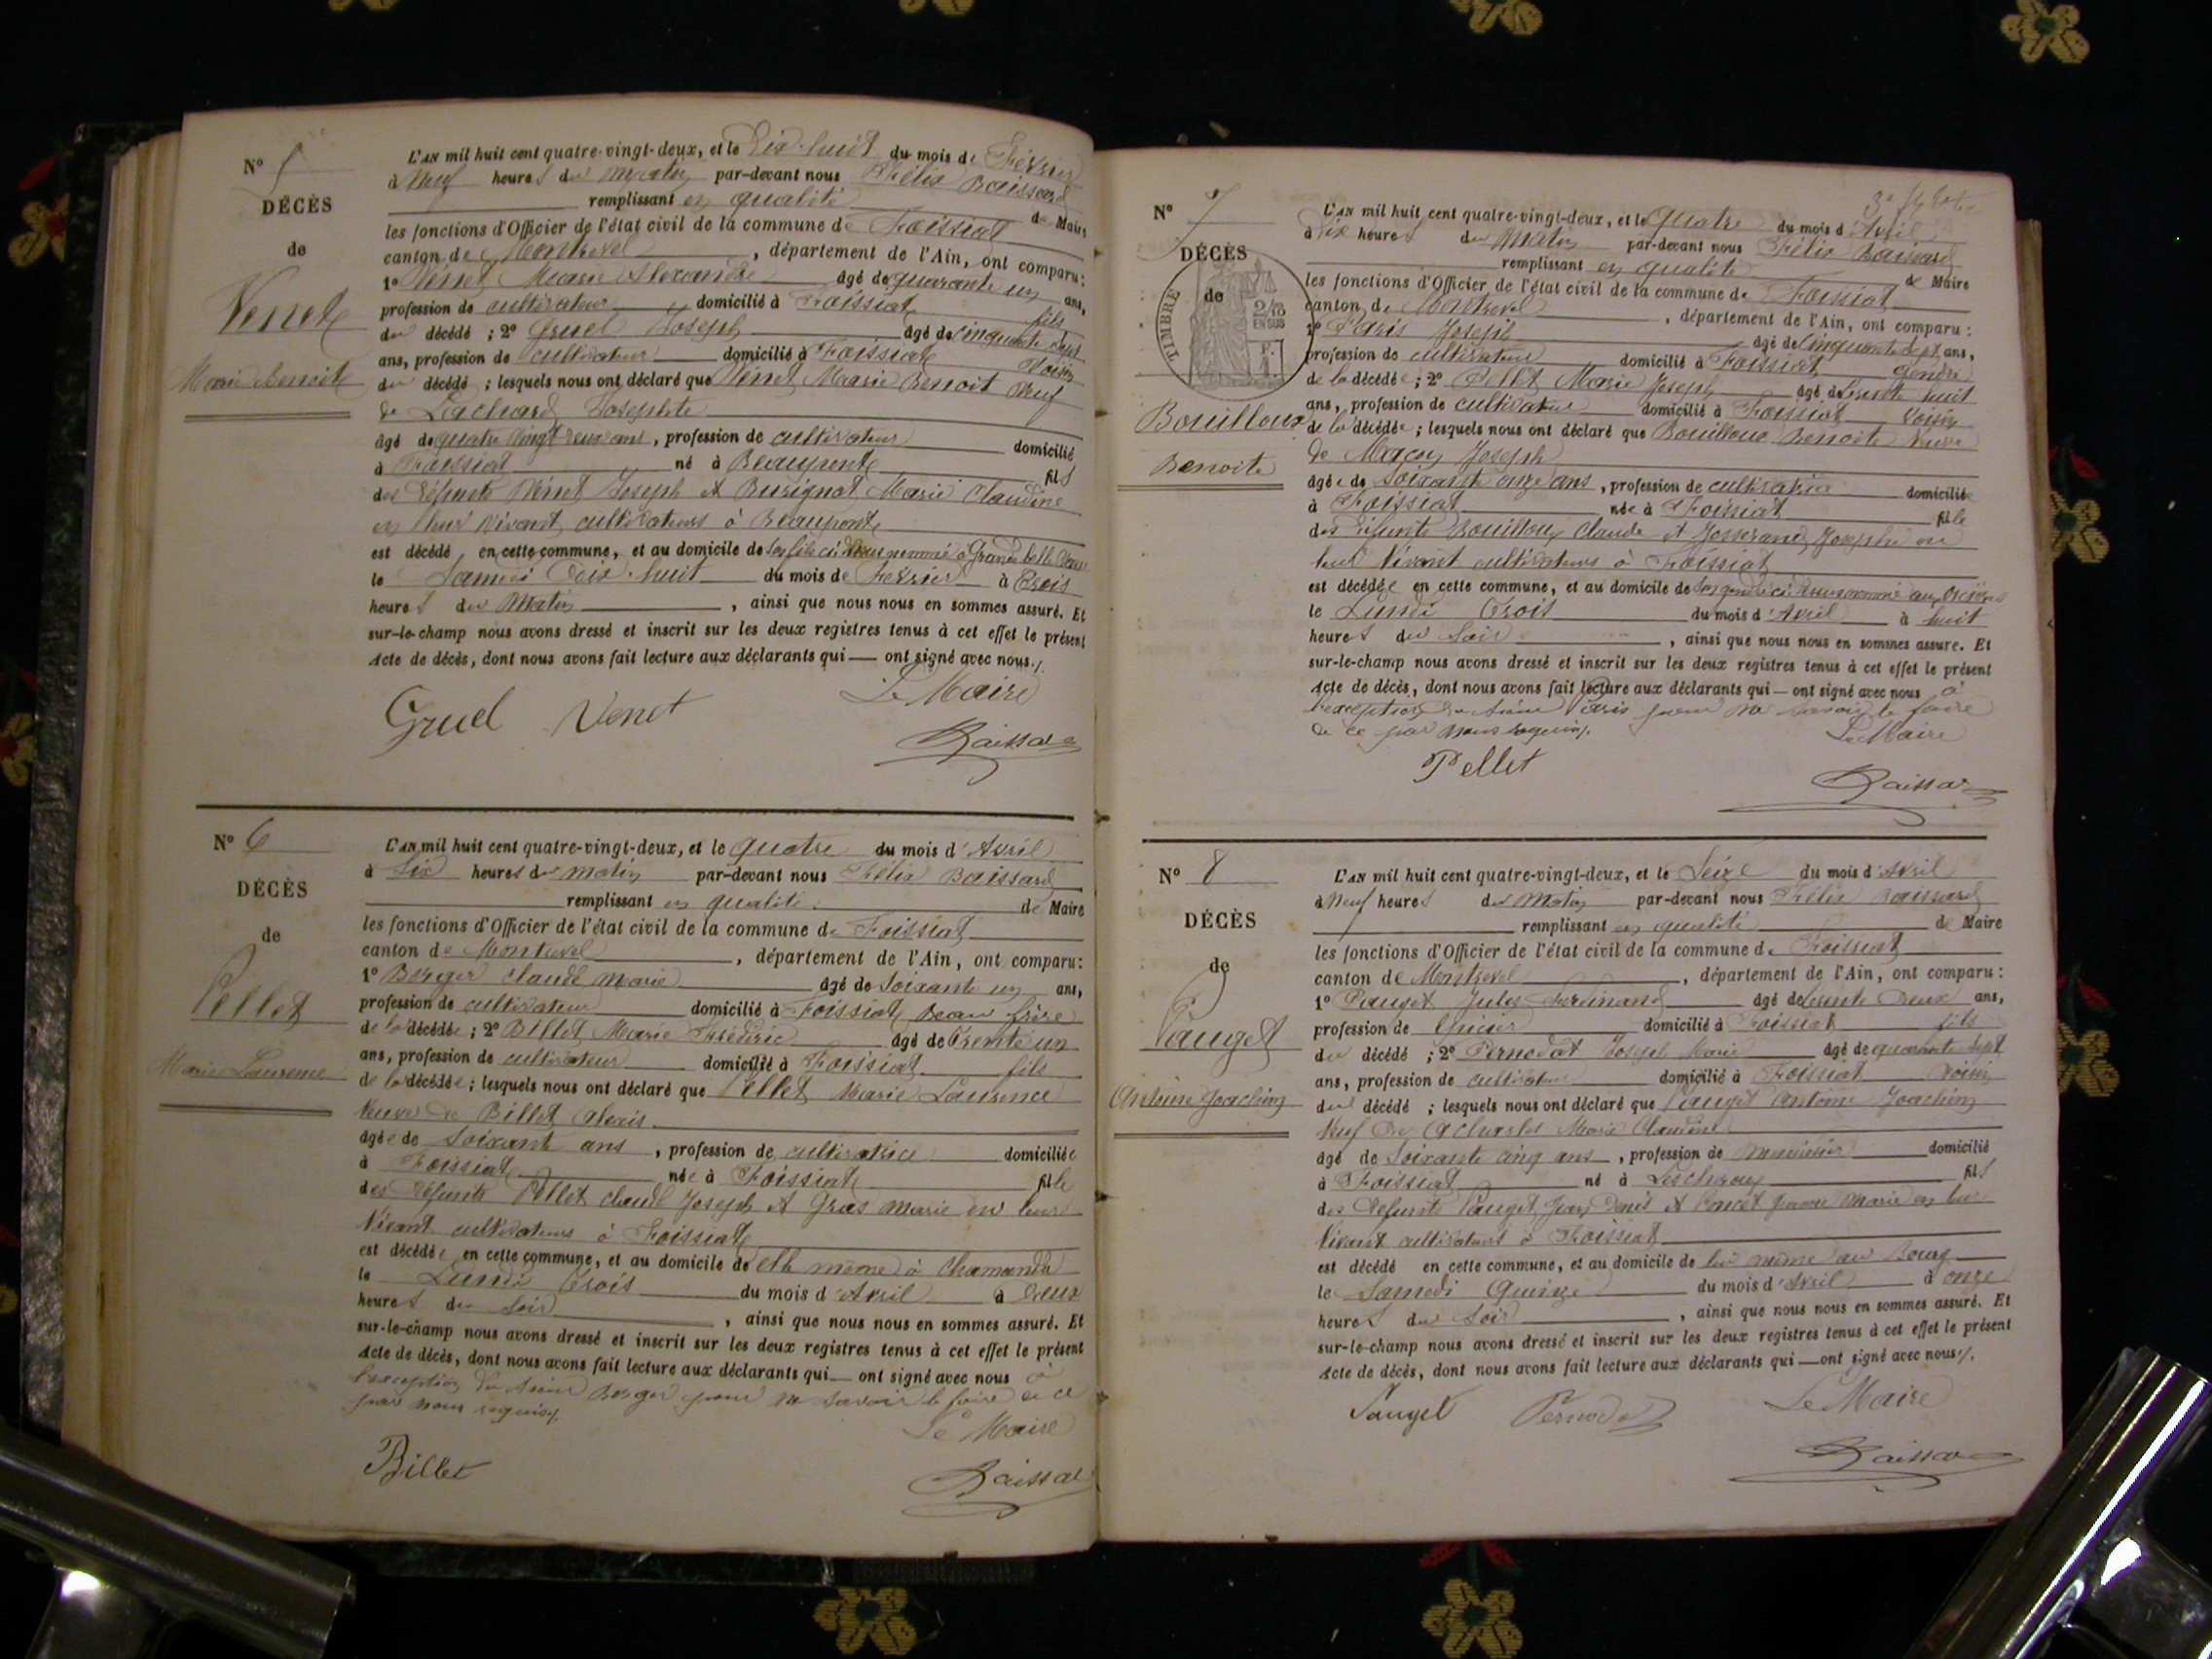 N° 5
DÉCÈS
de
Venet
Marie Benoit
L'AN mil huit cent quatre-vingt-deux, et le Dix huit du mois de Février
à Neuf heures du matin par-devant nous Félix Baissard
remplissant en qualité de Maire
les fonctions d'Officier de l'état civil de la commune de Foissiat
canton de Montrevel, département de l'Ain, ont comparu:
1° Venet Marie Alexandre âgé de quarante un ans,
profession de cultivateur domicilié à Foissiat fils
du décédé ; 2° Gruel Joseph âgé de cinquante sept
ans, profession de cultivateur domicilié à Foissiat voisin
du décédé ; lesquels nous ont déclaré que Venet Marie Benoit veuf
de Lachard Josephte
âgé de quatre vingt deux ans, profession de cultivateur domicilié
à Foissiat né à Beaupont fils
des défunts Venet Joseph et Burignat Marie Claudine
en leur vivant cultivateurs à Beaupont
est décédé en cette commune, et au domicile de son fils ci dessus nommé à Grande
le Samedi Dix-huit du mois de Février à Trois
heures du Matin, ainsi que nous nous en sommes assuré. Et
sur-le-champ nous avons dressé et inscrit sur les deux registres tenus à cet effet le présent
Acte de décès, dont nous avons fait lecture aux déclarants qui — ont signé avec nous./.
Le Maire
Gruel Venet
Baissard
N° 6
DÉCÈS
de
Pellet
Marie Laurence
L'AN mil huit cent quatre-vingt-deux, et le quatre du mois d'Avril
à Six heures du matin par-devant nous Félix Baissard
remplissant en qualité de Maire
les fonctions d'Officier de l'état civil de la commune de Foissiat
canton de Montrevel, département de l'Ain, ont comparu:
1° Berger Claude Marie âgé de Soixante un ans,
profession de cultivateur domicilié à Foissiat Beau frère
de la décédée ; 2° Billet Marie Frédéric âgé de Trente un
ans, profession de cultivateur domicilié à Foissiat fils
de la décédée ; lesquels nous ont déclaré que Pellet Marie Laurence
Veuve de Billet Alexis
âgée de Soixante ans, profession de cultivatrice domiciliée
à Foissiat née à Foissiat fille
des défunts Pellet Claude Joseph et Gras Marie en leur
Vivant cultivateurs à Foissiat
est décédée en cette commune, et au domicile de elle même à Chamandre
le Lundi Trois du mois d'Avril à Deux
heures du Soir, ainsi que nous nous en sommes assuré. Et
sur-le-champ nous avons dressé et inscrit sur les deux registres tenus à cet effet le présent
Acte de décès, dont nous avons fait lecture aux déclarants qui — ont signé avec nous à
l'exception du sieur Berger pour ne savoir le faire de ce
par nous requis./.
Le Maire
Billet
Baissard
N° 7
DÉCÈS
de
TIMBRE
2/10
EN SUS
Bouilloux
Benoite
L'AN mil huit cent quatre-vingt-deux, et le Quatre du mois d'Avril
à Dix heures du Matin par-devant nous Félix Baissard
remplissant en qualité de Maire
les fonctions d'Officier de l'état civil de la commune de Foissiat
canton de Montrevel, département de l'Ain, ont comparu :
1° Paris Joseph âgé de Cinquante sept ans,
profession de cultivateur domicilié à Foissiat gendre
de la décédée ; 2° Pellet Marie Joseph âgé de trente huit
ans, profession de cultivateur domicilié à Foissiat voisin
de la décédée ; lesquels nous ont déclaré que Bouilloux Benoite Veuve
de Maçon Joseph
âgée de Soixante onze ans, profession de cultivatrice domiciliée
à Foissiat née à Foissiat fille
des défunts Bouilloux Claude et Josserand Josephte en
leur Vivant cultivateurs à Foissiat
est décédée en cette commune, et au domicile de son gendre ci-dessus nommé
le Lundi Trois du mois d'Avril à huit
heures du Soir, ainsi que nous nous en sommes assuré. Et
sur-le-champ nous avons dressé et inscrit sur les deux registres tenus à cet effet le présent
Acte de décès, dont nous avons fait lecture aux déclarants qui — ont signé avec nous à
l'exception du sieur Paris pour ne savoir le faire
de ce par nous requis./.
Le Maire
Pellet
Baissard
N° 8
DÉCÈS
de
Pauget
Antoine Joachim
L'AN mil huit cent quatre-vingt-deux, et le Seize du mois d'Avril
à Neuf heures du Matin par-devant nous Félix Baissard
remplissant en qualité de Maire
les fonctions d'Officier de l'état civil de la commune de Foissiat
canton de Montrevel, département de l'Ain, ont comparu :
1° Pauget Jules Ferdinand âgé de trente Deux ans,
profession de Epicier domicilié à Foissiat fils
du décédé ; 2° Pernodat Joseph Marie âgé de quarante sept
ans, profession de cultivateur domicilié à Foissiat voisin
du décédé ; lesquels nous ont déclaré que Pauget Antoine Joachim
Veuf de Marie Claudine
âgé de Soixante cinq ans, profession de menuisier domicilié
à Foissiat né à Lescheroux fils
des défunts Pauget Jean Denis et Poncet Jeanne Marie en leur
Vivant cultivateurs à Foissiat
est décédé en cette commune, et au domicile de lui même au Bourg
le Samedi Quinze du mois d'Avril à onze
heures du Soir, ainsi que nous nous en sommes assuré. Et
sur-le-champ nous avons dressé et inscrit sur les deux registres tenus à cet effet le présent
Acte de décès, dont nous avons fait lecture aux déclarants qui — ont signé avec nous./.
Le Maire
Pauget Pernodat
Baissard